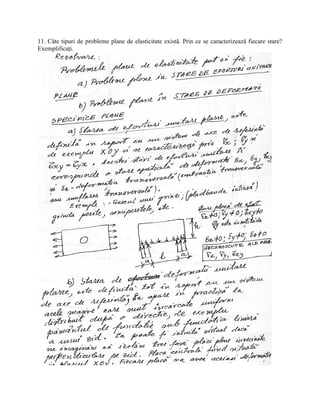 11. Câte tipuri de probleme plane de elasticitate există. Prin ce se caracterizează fiecare stare?
Exemplificați.
Rezolvare:
Problemele plane de elasticitate pot fi:
a) Probleme plane în STARE DE EFORTURI UNITARE
PLANE
b) Probleme plane în STARE DE DEFORMAȚII
SPECIFICE PLANE
a) Starea de eforturi unitare plane, este
definită în raport cu un sistem de axe de referință
de exemplu XOY și se caracterizează prin σx; σy și
τxy = τyx. Acestei stări de eforturi unitare îi
corespunde o stare spațială de deformații εx, εy, εxy
și εz - deformația transversală (contracția transversală
sau umflarea transversală).
Exemple: - Cazul unei grinzi
grinda perete, etc.
Stare plană de
εx≠0; εy≠0; εxy≠0
εx≠0; εy≠0; εz≠0
σx, σy, τxy
b) Starea de deformații unitare
plane, este definită tot în raport cu un sistem
de axe de referință, ea apare în practică la
acele care sunt încărcate uniform
distribuit după o direcție, de exemplu
pământul de fundație sub fundația liniară
a unui zid. Ea poate fi intuită virtual dacă
ne imaginăm să izolăm trei fâșii plane învecinate
perpendiculare pe zid. Placa centrală fiind situată
în planul XOY. Fiecare placă va avea aceeași deformație